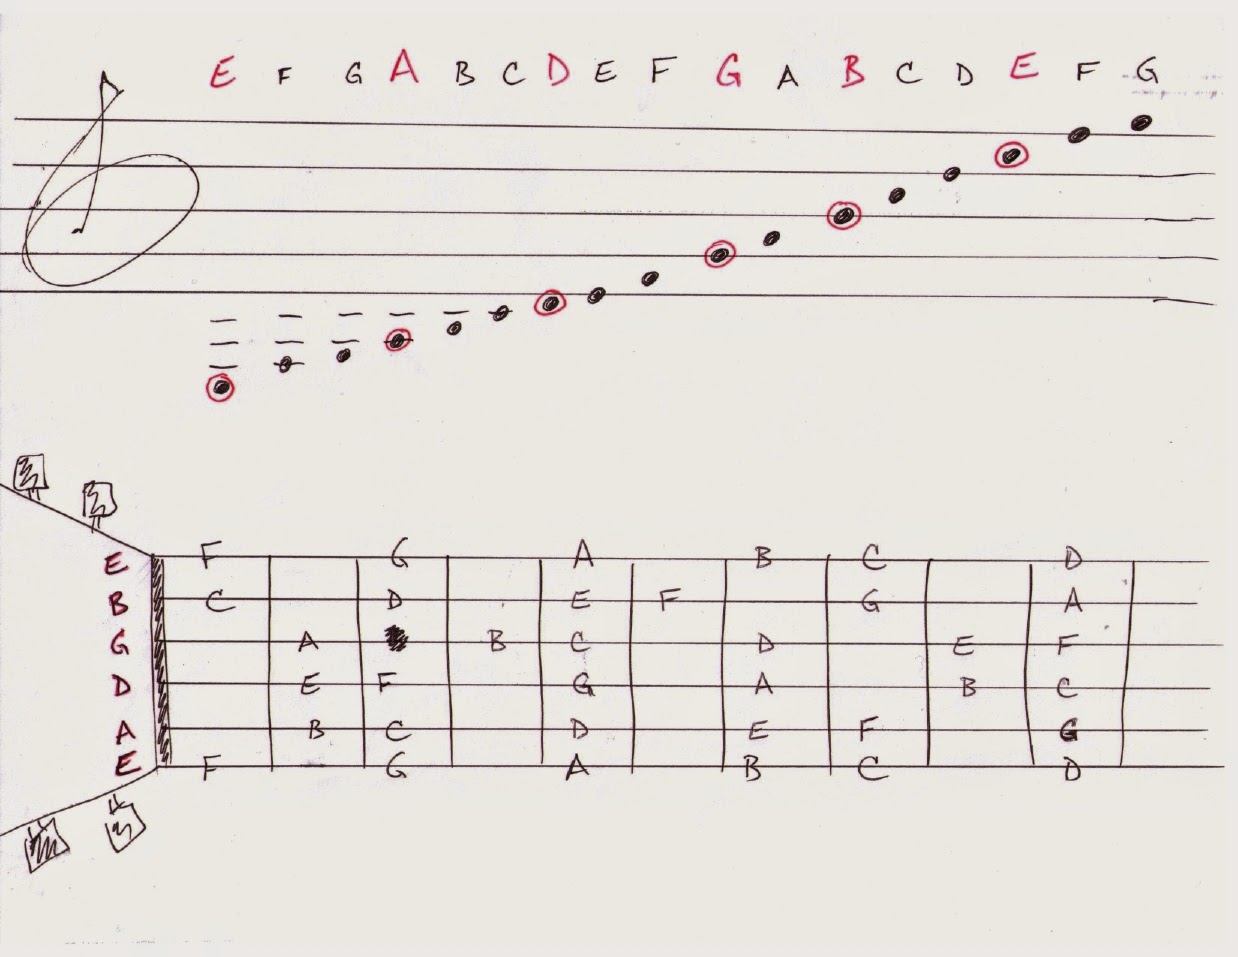 E F G A B C D E F G A B C D E F G
E F G A B C D
B C D E F G A
G A B C D E F
D E F G A B C
A B C D E F G
E F G A B C D